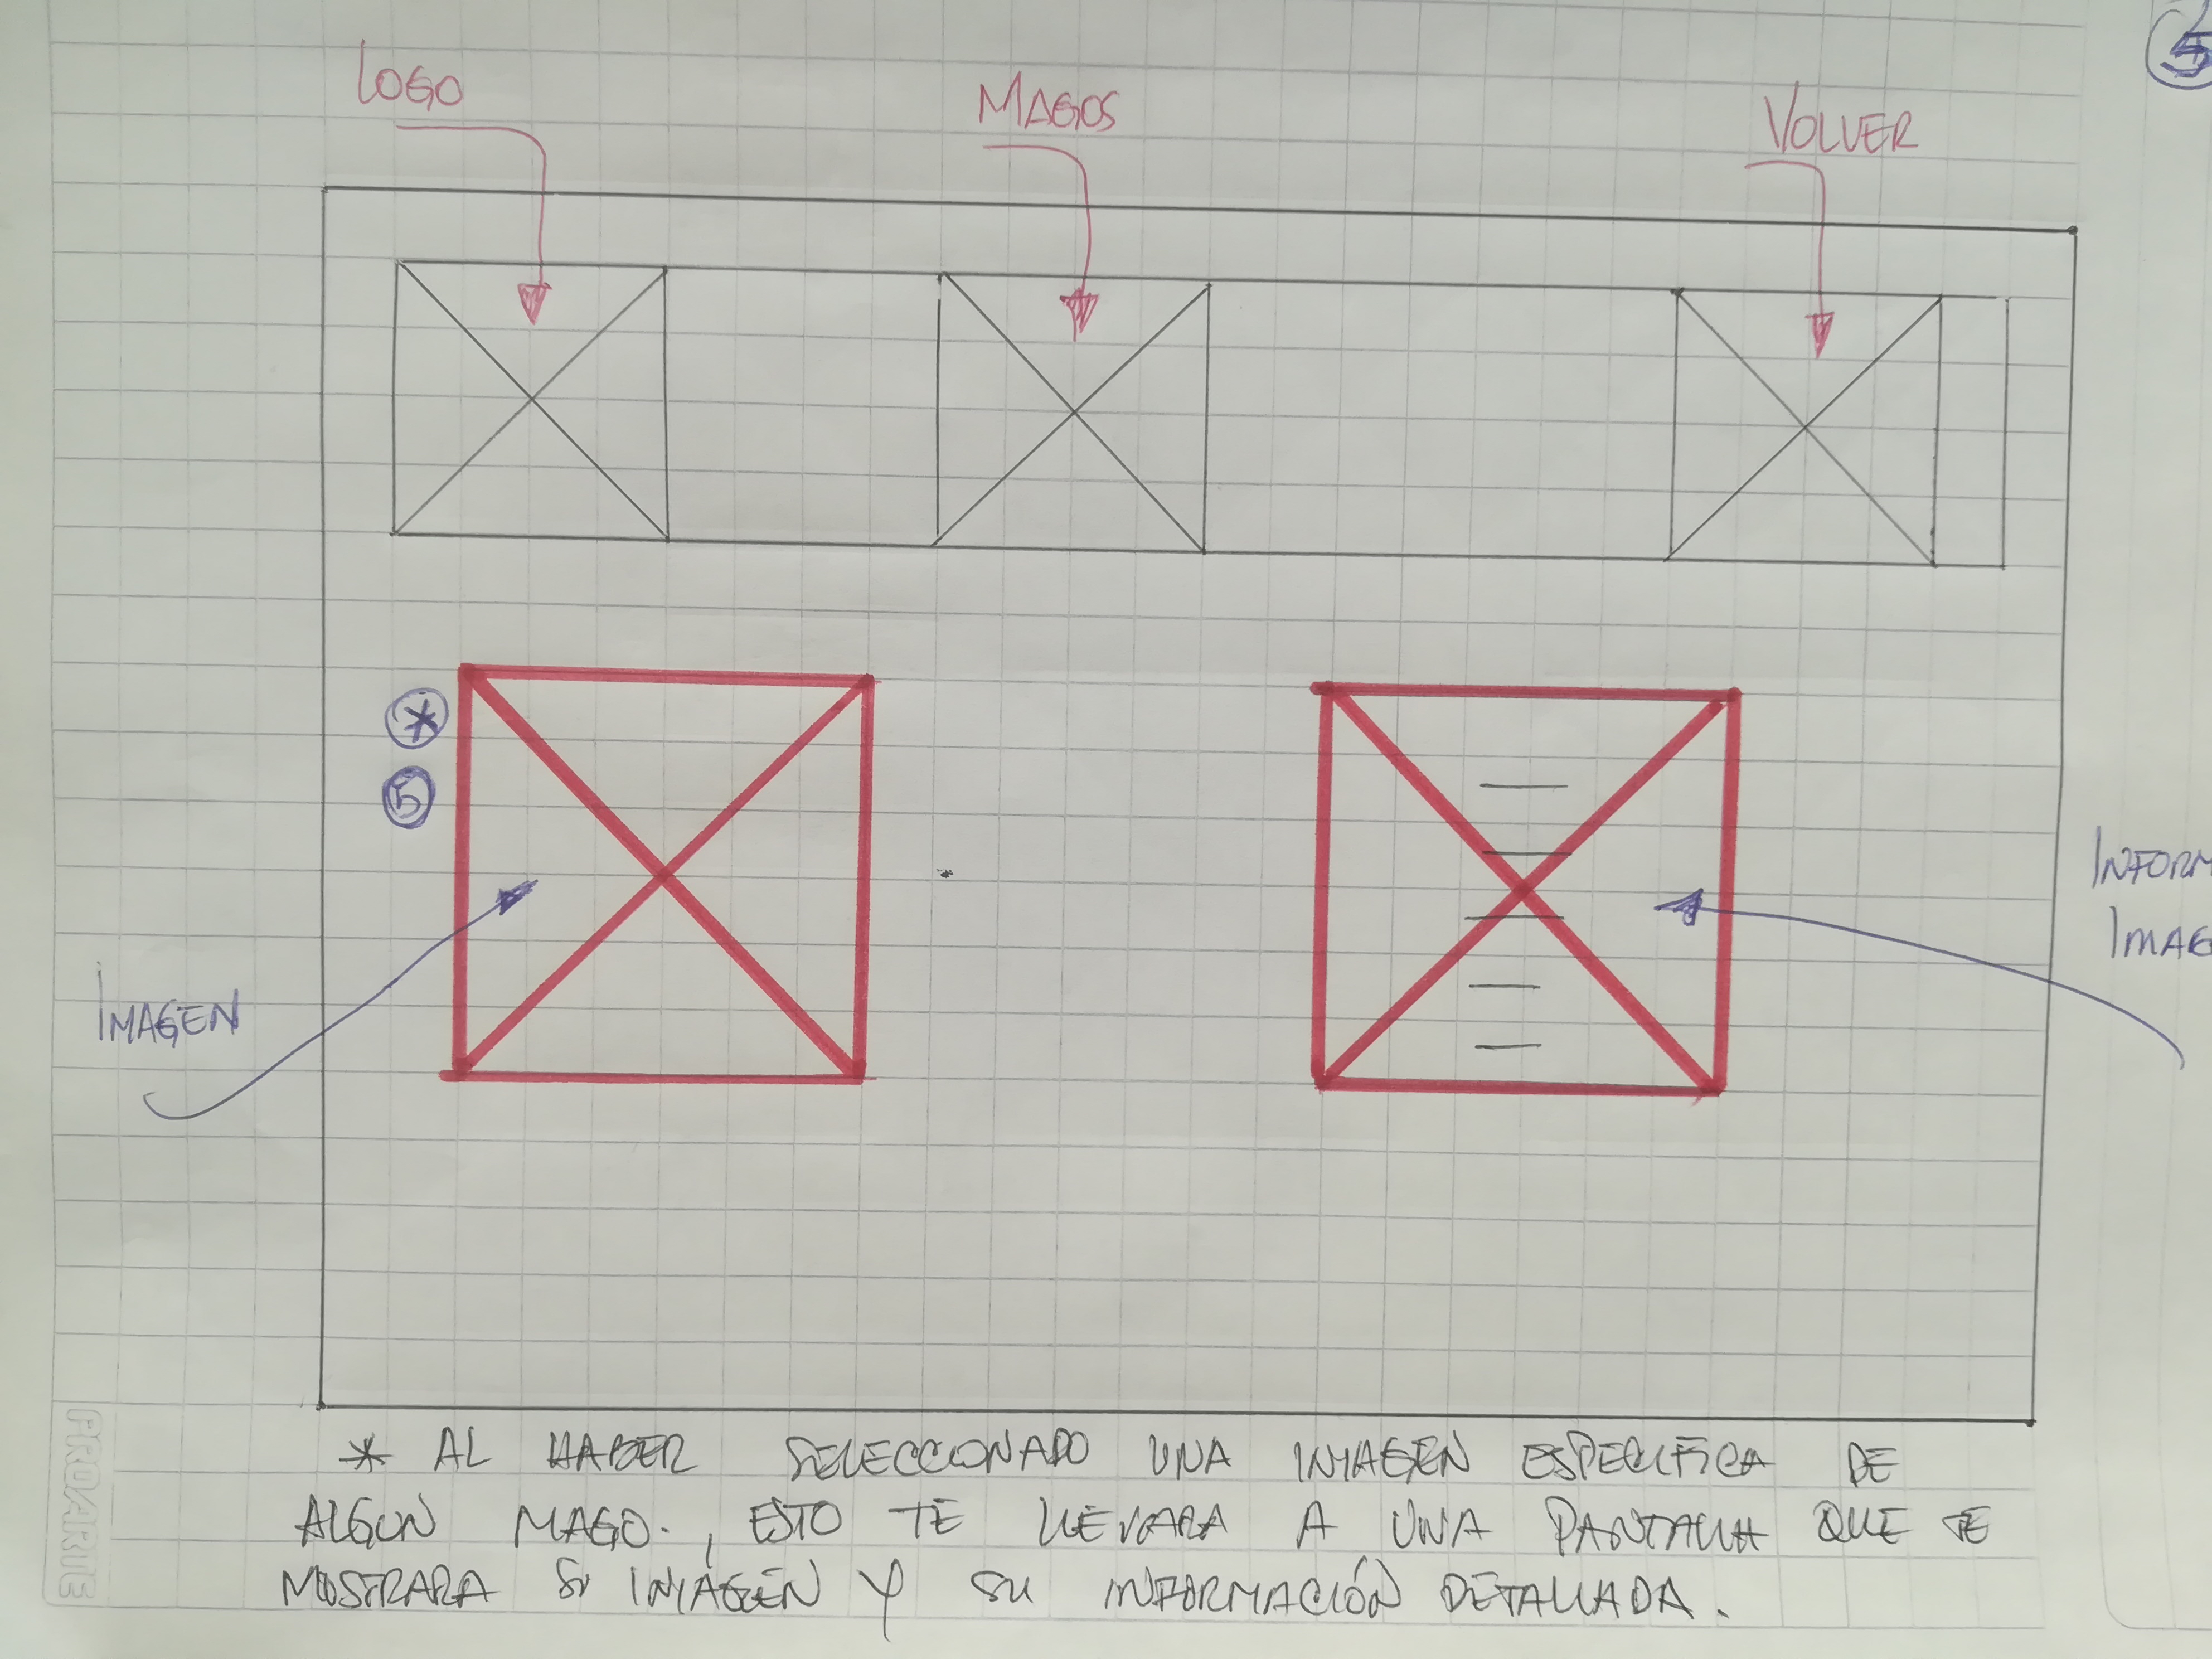 5
LOGO
MAGOS
VOLVER
*
5
IMAGEN
INFORM
IMAG
* AL HABER SELECCIONADO UNA IMAGEN ESPECIFICA DE
ALGUN MAGO., ESTO TE LLEVARA A UNA PANTALLA QUE TE
MOSTRARA SU IMAGEN Y SU INFORMACIÓN DETALLADA.
PROARTE